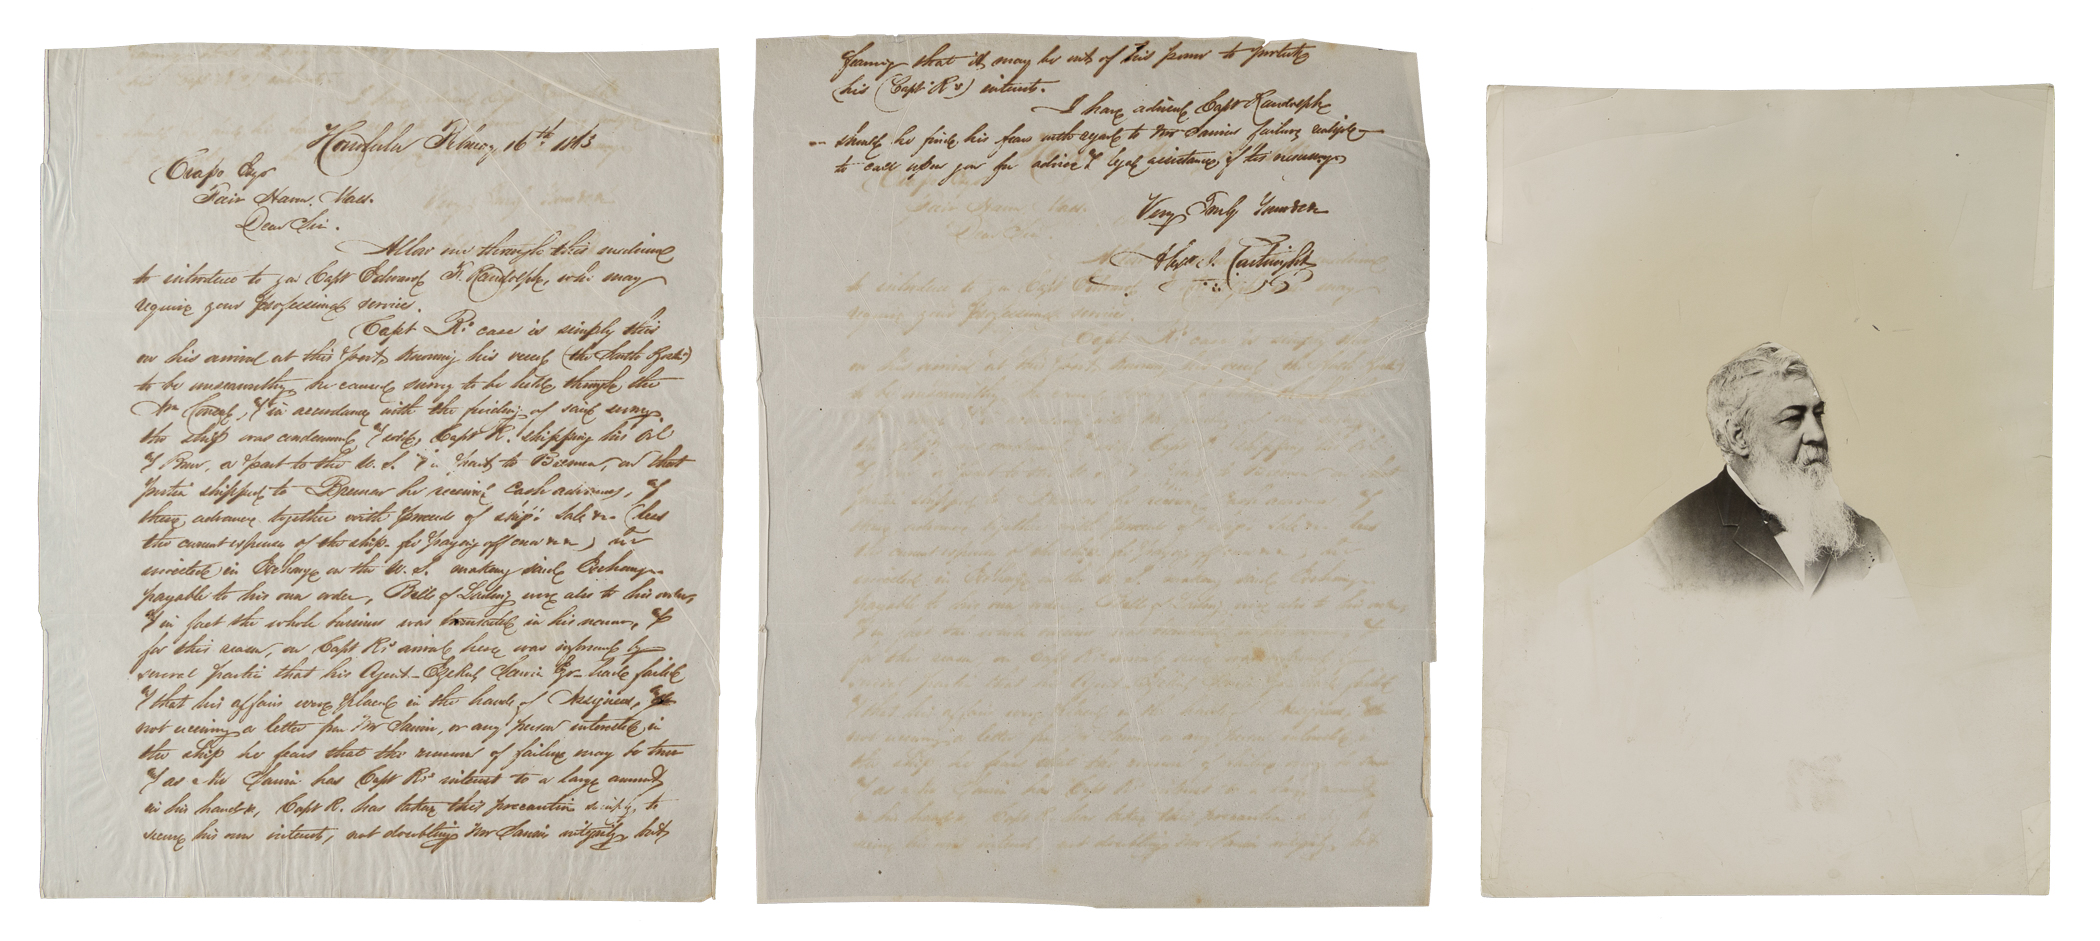 Honolulu Febuary 16th 1863
Crapo Esqr
Fair Haven. Mass.
Dear Sir.
Allow me through this medium
to introduce to you Capt Edward F. Randolph, who may
require your Professional service.
Capt Rs case is simply this
on his arrival at this Port, knowing his vessel (the South Boston)
to be unseaworthy he caused survey to be held, through the
Am Consul, & in accordance with the finding of said survey,
the ship was condemned, & sold, Capt R. shipping his Oil
& Bone, a part to the U.S. & a part to Bremen, on that
portion shipped to Bremen he received cash advances, &
these advances together with proceeds of ship's sale &c (less
the current expenses of the ship for paying off crew &c &c) are
invested in Exchange on the U.S. making said Exchange
payable to his own order, Bills of Lading were also to his order,
& in fact the whole business was transacted in his name, &
for this reason, on Capt Rs arrival here was informed by
several parties that his Agent Ezekiel Sawin Esqr had failed
& that his affairs were placed in the hands of Assignees, &
not receiving a letter from Mr Sawin, or any person interested in
the ship he fears that the rumours of failure may be true
& as Mr Sawin has Capt Rs interest to a large amount,
in his hands, Capt R. has taken this precaution simply to
secure his own interests, not doubting Mr Sawins integrity, but
fearing that it may be out of his power to protect
his (Capt Rs) interests.
I have advised Capt Randolph
should he find his fears with regard to Mr Sawins failure
to call upon you for advice & legal assistance, if tis necessary
Very Truly Yours &c &c
Alexr J. Cartwright